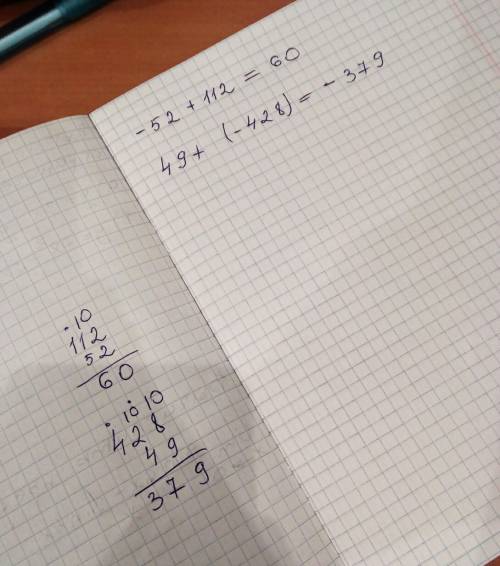 -52+112=60
49+ (-428)=-379
.10
112
52
60
. 10 10
428
49
379